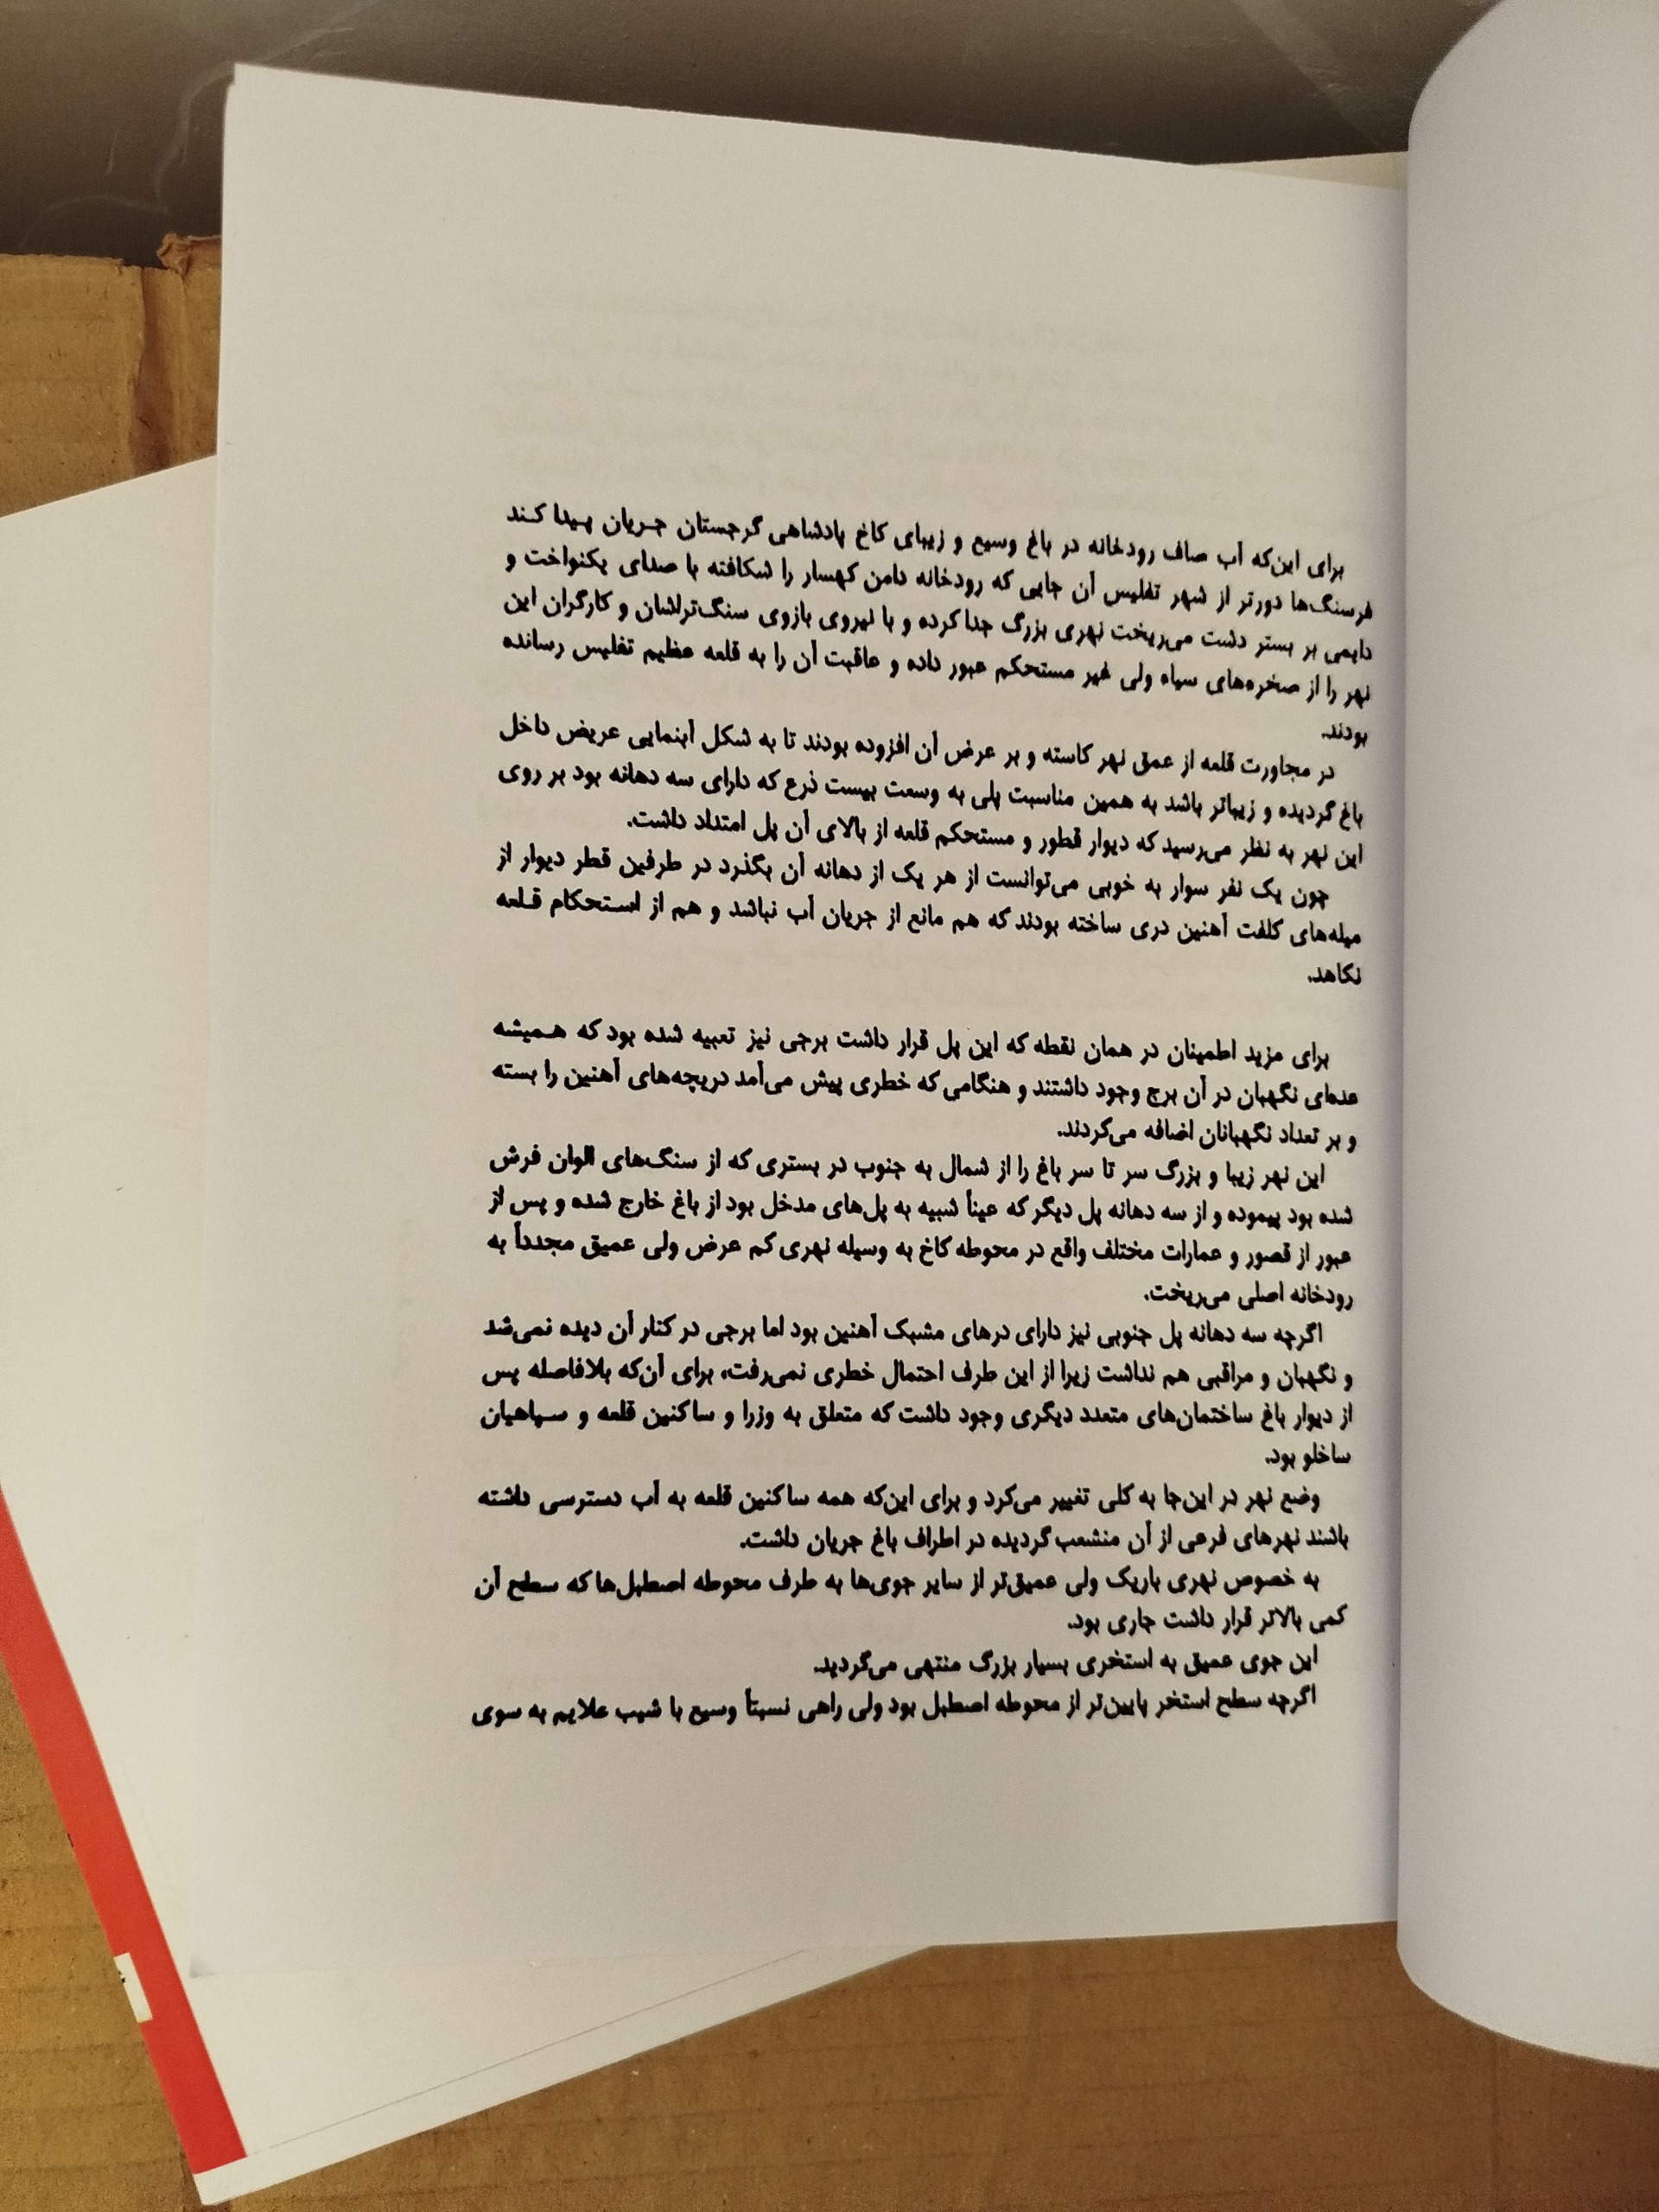 برای این‌که آب صاف رودخانه در باغ وسیع و زیبای کاخ پادشاهی گرجستان جریان پیدا کند
فرسنگ‌ها دورتر از شهر تفلیس آن جایی که رودخانه دامن کهسار را شکافته با صدای یکنواخت و
دایمی بر بستر دشت می‌ریخت نهری بزرگ جدا کرده و با نیروی بازوی سنگ‌تراشان و کارگران این
نهر را از صخره‌های سیاه ولی غیر مستحکم عبور داده و عاقبت آن را به قلعه عظیم تفلیس رسانده
بودند.
در مجاورت قلعه از عمق نهر کاسته و بر عرض آن افزوده بودند تا به شکل آبنمایی عریض داخل
باغ گردیده و زیباتر باشد به همین مناسبت پلی به وسعت بیست ذرع که دارای سه دهانه بود بر روی
این نهر به نظر می‌رسید که دیوار قطور و مستحکم قلعه از بالای آن پل امتداد داشت.
چون یک نفر سوار به خوبی می‌توانست از هر یک از دهانه آن بگذرد در طرفین قطر دیوار از
میله‌های کلفت آهنین دری ساخته بودند که هم مانع از جریان آب نباشد و هم از استحکام قلعه
نکاهد.
برای مزید اطمینان در همان نقطه که این پل قرار داشت برجی نیز تعبیه شده بود که همیشه
عده‌ای نگهبان در آن برج وجود داشتند و هنگامی که خطری پیش می‌آمد دریچه‌های آهنین را بسته
و بر تعداد نگهبانان اضافه می‌کردند.
این نهر زیبا و بزرگ سر تا سر باغ را از شمال به جنوب در بستری که از سنگ‌های الوان فرش
شده بود پیموده و از سه دهانه پل دیگر که عیناً شبیه به پل‌های مدخل بود از باغ خارج شده و پس از
عبور از قصور و عمارات مختلف واقع در محوطه کاخ به وسیله نهری کم عرض ولی عمیق مجدداً به
رودخانه اصلی می‌ریخت.
اگرچه سه دهانه پل جنوبی نیز دارای درهای مشبک آهنین بود اما برجی در کنار آن دیده نمی‌شد
و نگهبان و مراقبی هم نداشت زیرا از این طرف احتمال خطری نمی‌رفت، برای آن‌که بلافاصله پس
از دیوار باغ ساختمان‌های متعدد دیگری وجود داشت که متعلق به وزرا و ساکنین قلعه و سپاهیان
ساخلو بود.
وضع نهر در این‌جا به کلی تغییر می‌کرد و برای این‌که همه ساکنین قلعه به آب دسترسی داشته
باشند نهرهای فرعی از آن منشعب گردیده در اطراف باغ جریان داشت.
به خصوص نهری باریک ولی عمیق‌تر از سایر جوی‌ها به طرف محوطه اصطبل‌ها که سطح آن
کمی بالاتر قرار داشت جاری بود.
این جوی عمیق به استخری بسیار بزرگ منتهی می‌گردید.
اگرچه سطح استخر پایین‌تر از محوطه اصطبل بود ولی راهی نسبتاً وسیع با شیب علایم به سوی